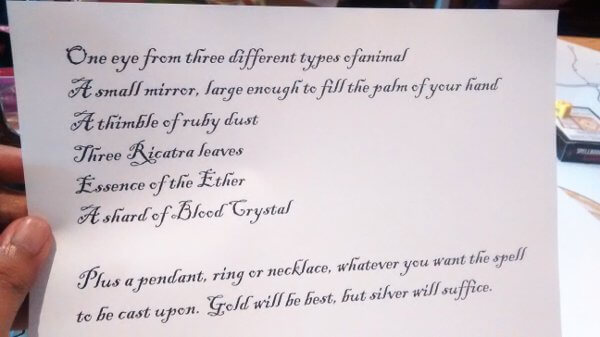 One eye from three different types ofanimal
A small mirror, large enough to fill the palm of your hand
A thimble of ruby dust
Three Ricatra leaves
Essence of the Ether
A shard of Blood Crystal
Plus a pendant, ring or necklace, whatever you want the spell
to be cast upon. Gold will be best, but silver will suffice.